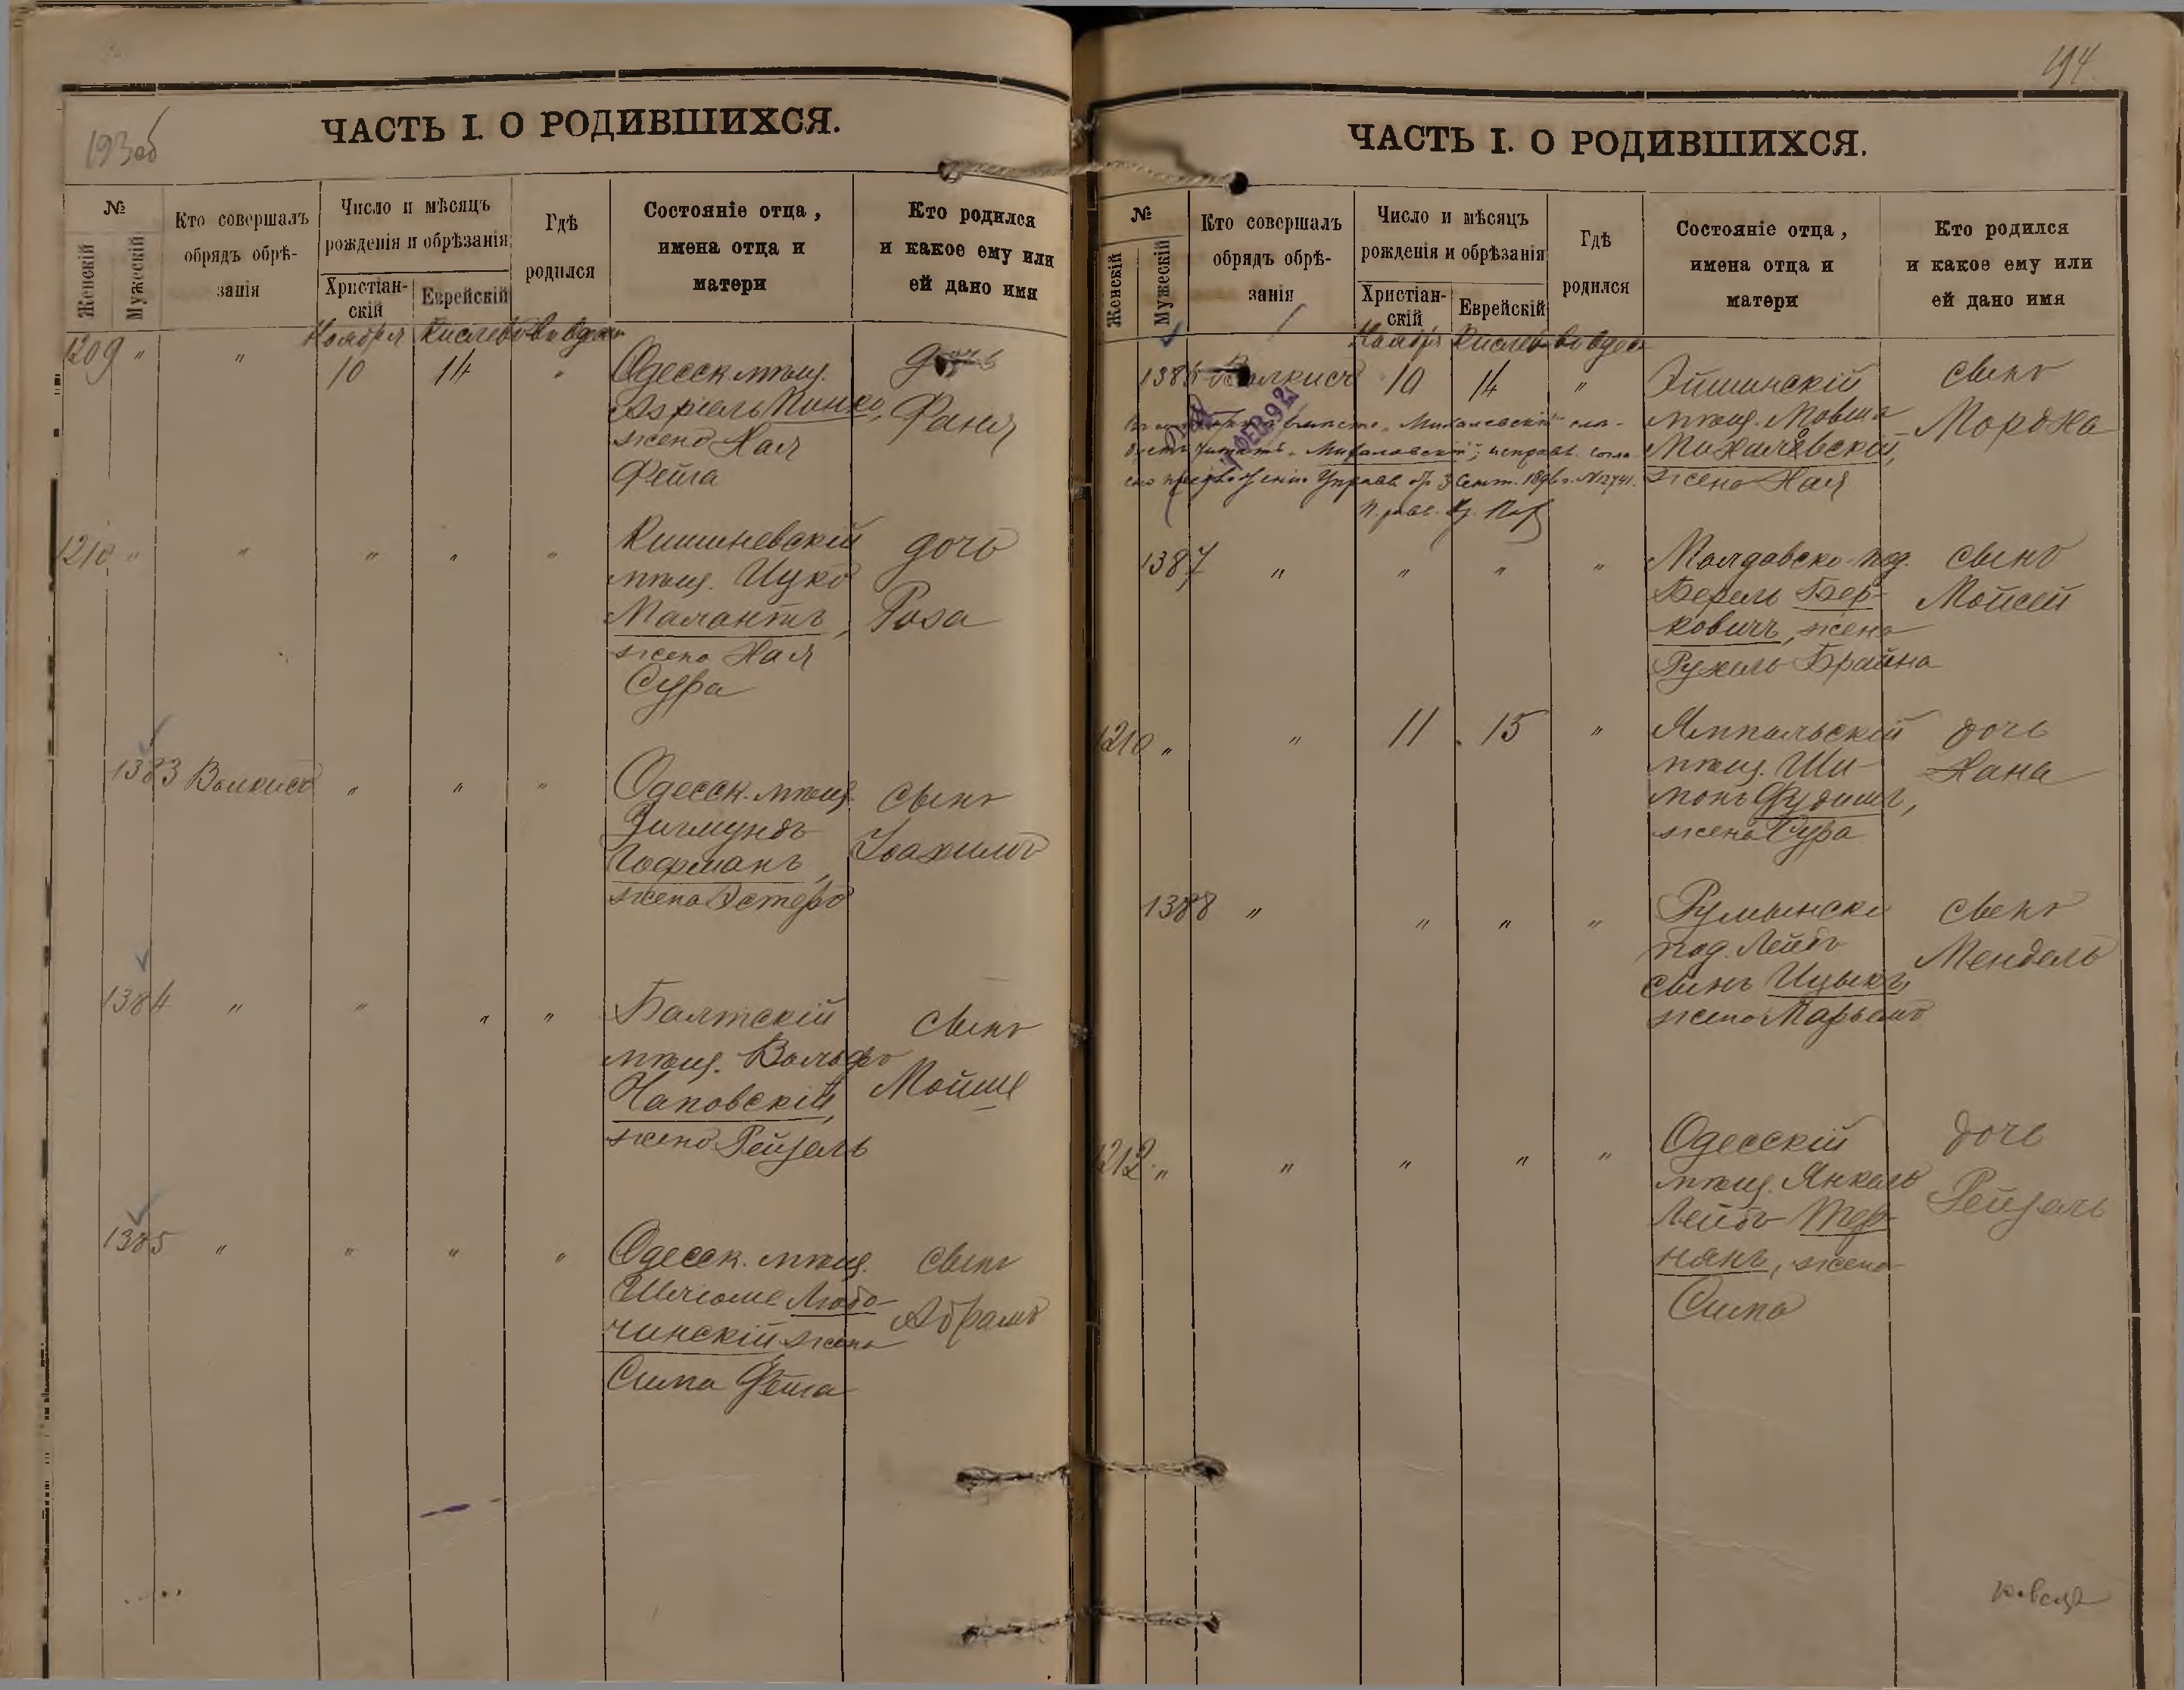 193об
ЧАСТЬ I. О РОДИВШИХСЯ.
№
Женскій
Мужескій
Кто совершалъ
обрядъ обрѣ-
занія
Число и мѣсяцъ
рожденія и обрѣзанія
Христіан-
скій
Еврейскій
Гдѣ
родился
Состояніе отца,
имена отца и
матери
Кто родился
и какое ему или
ей дано имя
Ноября
1209 " " 10 14 " Одесск. мѣщ.
жена Хая
Фейга
дочь
Фаня
1210 " " " " " Кишиневскій
мѣщ. Ицко
Малантъ,
жена Хая
Сура
дочь
Роза
1383 " " " Одесск. мѣщ.
Зигмундъ
Гофманъ,
жена Эстеръ
сынъ
Іоахимъ
1384 " " " " Балтскій
мѣщ. Вольфъ
жена Рейзель
сынъ
Мойше
1385 " " " " Одесск. мѣщ.
Шлиоме Любо-
чинскій жена
Сима Фейга
сынъ
Абрамъ
194
ЧАСТЬ I. О РОДИВШИХСЯ.
№
Женскій
Мужескій
Кто совершалъ
обрядъ обрѣ-
занія
Число и мѣсяцъ
рожденія и обрѣзанія
Христіан-
скій
Еврейскій
Гдѣ
родился
Состояніе отца,
имена отца и
матери
Кто родился
и какое ему или
ей дано имя
Ноября
1386 10 14 " Эйшинскій
мѣщ. Мовша
Михалевскій,
жена Хая
сынъ
Мордха
1387 " " " " Молдавско-под.
Берель Бер-
ковичъ, жена
Рухель Брайна
сынъ
Мойсей
1210 " " 11 15 " Ямпольскій
мѣщ. Ши-
монъ Фудимъ,
жена Сура
дочь
Хана
1388 " " " " Румынскі
под. Лейбъ
сынъ Ицыкъ,
жена Марьемъ
сынъ
Мендель
1212 " " " " " Одесскій
мѣщ. Янкель
Лейбъ Тер-
манъ, жена
Сима
дочь
Рейзель